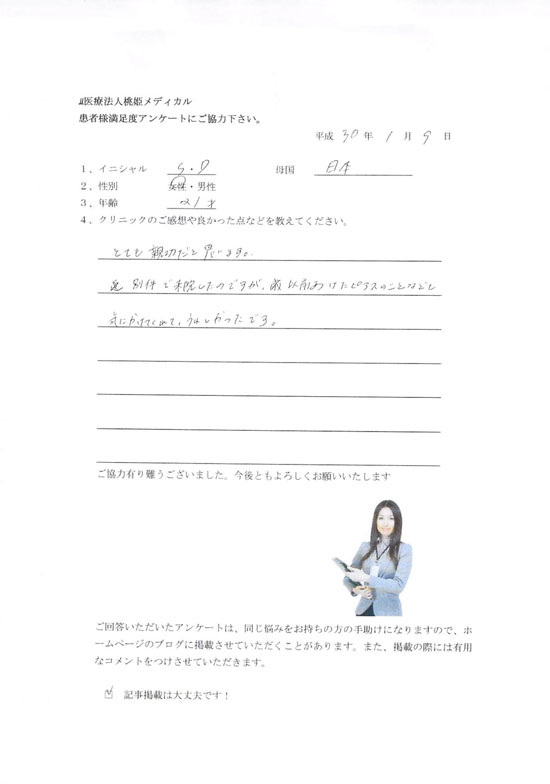 医療法人桃姫メディカル
患者様満足度アンケートにご協力下さい。
平成 30 年 1 月 9 日
1、イニシャル S・O 母国 日本
2、性別 女性・男性
3、年齢 21才
4、クリニックのご感想や良かった点などを教えてください。
とても親切だと思います。
別件で来院したのですが、以前あけたピアスのことなども
気にかけてくれて、うれしかったです。
ご協力有り難うございました。今後ともよろしくお願いいたします
ご回答いただいたアンケートは、同じ悩みをお持ちの方の手助けになりますので、ホ
ームページのブログに掲載させていただくことがあります。また、掲載の際には有用
なコメントをつけさせていただきます。
☑ 記事掲載は大丈夫です！